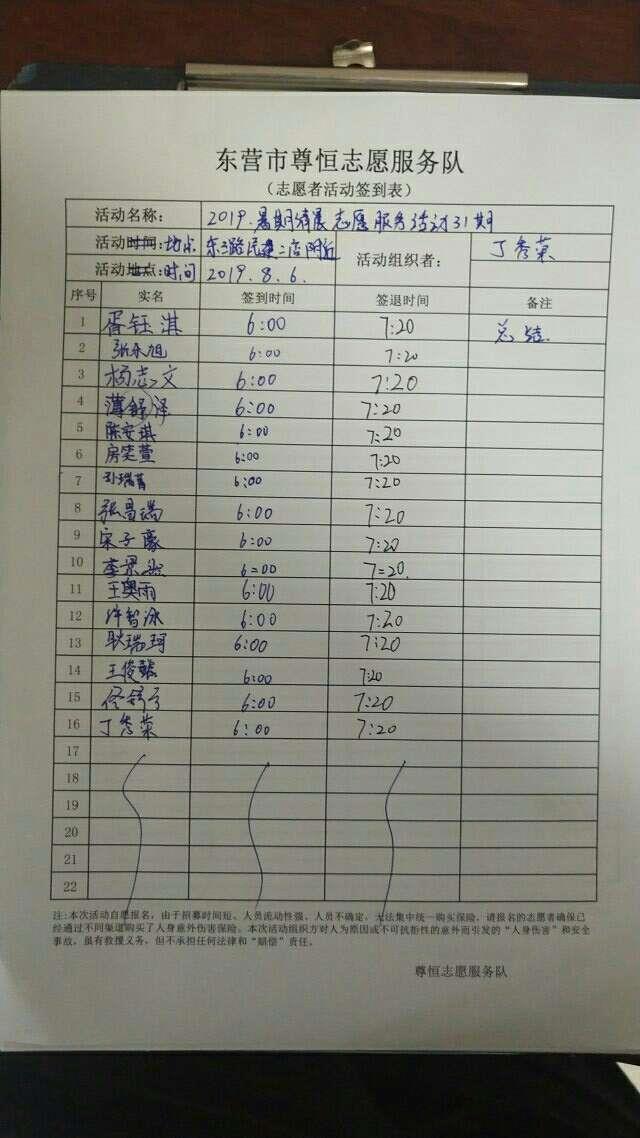 东营市尊恒志愿服务队
（志愿者活动签到表）
活动名称： 2019.暑期清晨志愿服务活动31期
活动时间:地点 东三路民建二店附近 活动组织者： 丁秀荣
活动地点:时间 2019.8.6.
序号 实名 签到时间 签退时间 备注
1 胥钰淇 6:00 7:20 总结
2 张永旭 6:00 7:20
3 杨志文 6:00 7:20
4 薄舒泽 6:00 7:20
5 陈安琪 6:00 7:20
6 房奕萱 6:00 7:20
7 孙瑞菁 6:00 7:20
8 张昌瑞 6:00 7:20
9 宋子豪 6:00 7:20
10 李景然 6:00 7:20
11 王奥雨 6:00 7:20
12 许智泳 6:00 7:20
13 耿瑞珂 6:00 7:20
14 王俊懿 6:00 7:20
15 6:00 7:20
16 丁秀荣 6:00 7:20
17
18
19
20
21
22
注:本次活动自愿报名，由于招募时间短、人员流动性强、人员不确定，无法集中统一购买保险，请报名的志愿者确保已
经通过不同渠道购买了人身意外伤害保险。本次活动组织方对人为原因或不可抗拒性的意外而引发的“人身伤害”和安全
事故，虽有救援义务，但不承担任何法律和“赔偿”责任。
尊恒志愿服务队